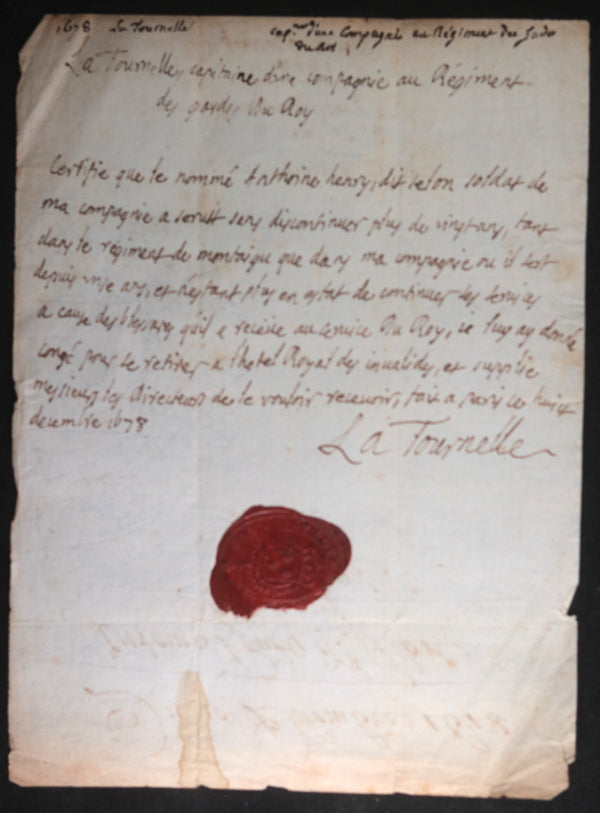 1678 La Tournelle cap.ne d'une Compagnie au Régiment des Gardes
du Roi
La Tournelle, capitaine d'une compagnie au Régiment
des gardes Du Roy
Certifie que le nommé Anthoine henry, dit selon soldat de
ma compagnie a seruit sans discontinuer plus de vingt ans, tant
dans le regiment de montaigu que dans ma compagnie ou il est
depuis ans, et n'estant plus en estat de continuer ses seruices
a cause des blessures qu'il a receüe au seruice Du Roy, ie luy ay donné
congé pour se retirer a l'hotel Royal des inualides, et supplie
messieurs les Directeurs de le vouloir receuoir, fait a paris ce huict
decembre 1678
La Tournelle